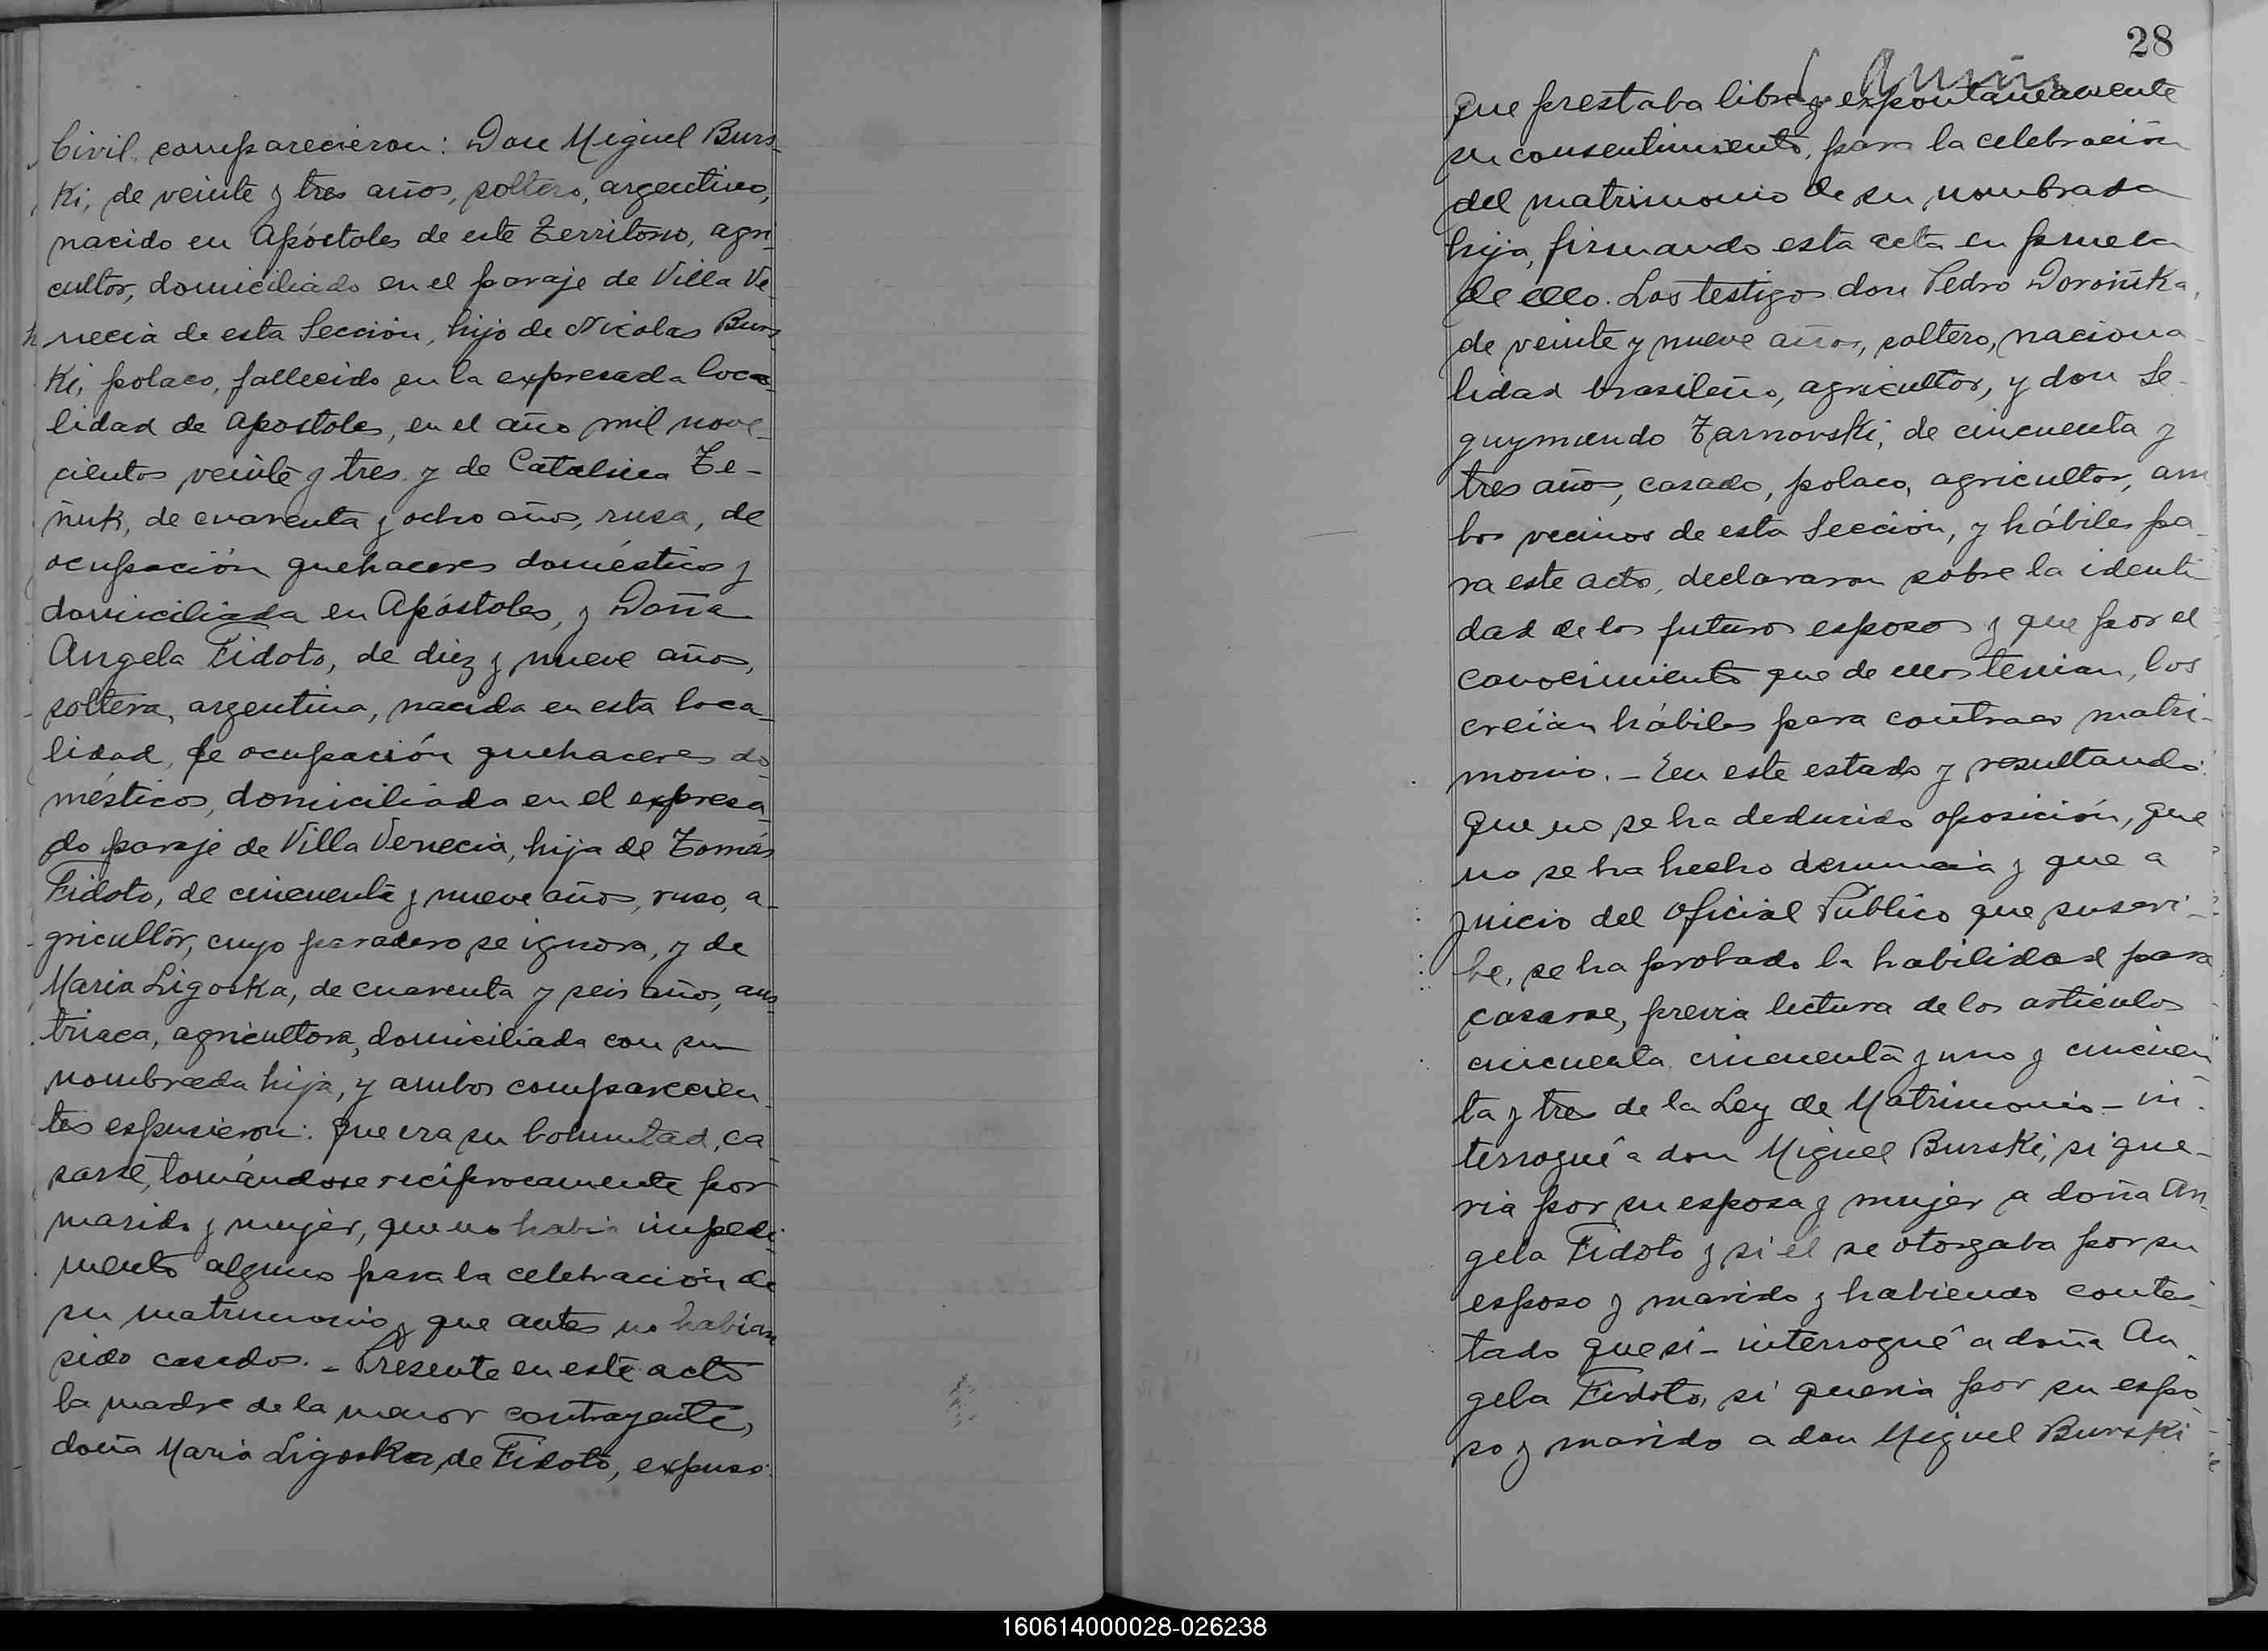 Civil, comparecieron: Don Miguel Burs-
ki, de veinte y tres años, soltero, argentino,
nacido en Apóstoles de este Territorio, agri-
cultor, domiciliado en el paraje de Villa Ve-
necia de esta Sección, hijo de Nicolas Burs-
ki, polaco, fallecido en la expresada loca-
lidad de Apostoles, en el año mil nove-
cientos veinte y tres y de Catalina Te-
ñuk, de cuarenta y ocho años, rusa, de
ocupación quehaceres domésticos y
domiciliada en Apóstoles, y Doña
Angela Fidoto, de diez y nueve años,
soltera, argentina, nacida en esta loca-
lidad, de ocupación quehaceres do-
mésticos, domiciliada en el expresa-
do paraje de Villa Venecia, hija de Tomás
Fidoto, de cincuenta y nueve años, ruso, a-
gricultor, cuyo paradero se ignora, y de
Maria Ligoska, de cuarenta y seis años, aus-
triaca, agricultora, domiciliada con su
nombrada hija, y ambos comparecien-
tes espusieron: que era su boluntad, ca-
sarse, tomándose reciprocamente por
marido y mujer, que no habia impedi-
mento alguno para la celebración de
su matrimonio y que antes no habian
sido casados. - Presente en este acto
la madre de la menor contrayente,
doña Maria Ligoska de Fidoto, expuso:
28
que prestaba libre y expontaneamente
su consentimiento, para la celebración
del matrimonio de su nombrada
hija, firmando esta acta en prueba
de ello. Los testigos don Pedro Doroñka,
de veinte y nueve años, soltero, naciona-
lidad brasileño, agricultor, y don Se-
guymundo Tarnovski, de cincuenta y
tres años, casado, polaco, agricultor, am
bos vecinos de esta Sección, y hábiles pa-
ra este acto, declararon sobre la identi
dad de los futuros esposos y que por el
conocimiento que de ellos tenian, los
creían hábiles para contraer matri-
monio. - En este estado y resultando:
que no se ha deducido oposición, que
no se ha hecho denuncia y que a
juicio del Oficial Público que suscri-
be, se ha probado la habilidad para
casarse, previa lectura de los articulos
cincuenta, cincuenta y uno y cincuen
ta y tres de la Ley de Matrimonio - in-
terrogué a don Miguel Burski, si que-
ria por su esposa y mujer a doña An-
gela Fidoto y si él se otorgaba por su
esposo y marido y habiendo contes-
tado que si - interrogué a doña An-
gela Fidoto, si queria por su espo-
so y marido a don Miguel Burski
160614000028-026238